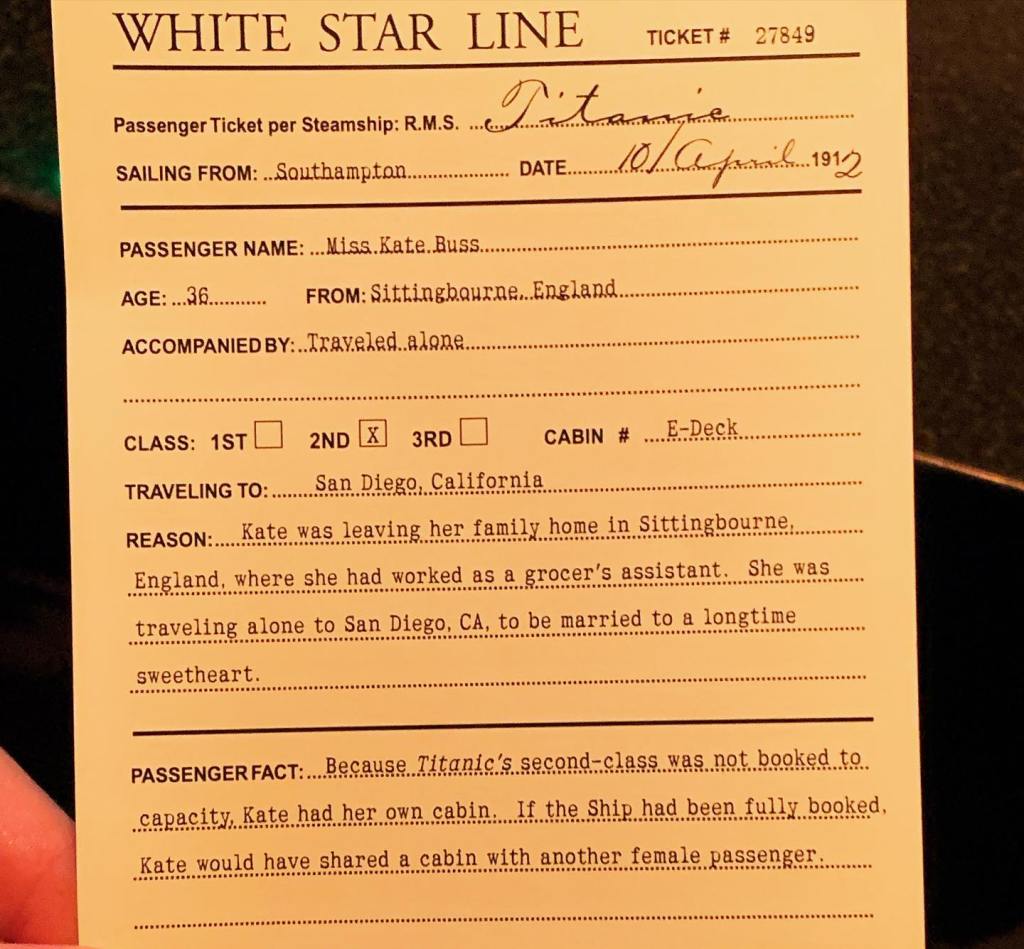 WHITE STAR LINE TICKET # 27849
Passenger Ticket per Steamship: R.M.S. Titanic
SAILING FROM: Southampton DATE 10/April 1912
PASSENGER NAME: Miss Kate Buss
AGE: 36 FROM: Sittingbourne, England
ACCOMPANIED BY: Traveled alone
CLASS: 1ST 2ND X 3RD CABIN # E-Deck
TRAVELING TO: San Diego, California
REASON: Kate was leaving her family home in Sittingbourne,
England, where she had worked as a grocer's assistant. She was
traveling alone to San Diego, CA, to be married to a longtime
sweetheart.
PASSENGER FACT: Because Titanic's second-class was not booked to
capacity, Kate had her own cabin. If the Ship had been fully booked,
Kate would have shared a cabin with another female passenger.